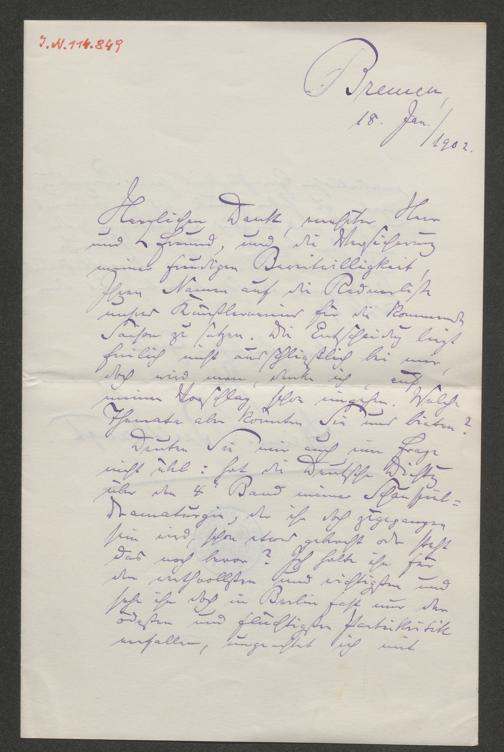 I.N. 114.849
Bremen,
18. Jan./1902.
Herzlichen Dank, verehrter Herr
und Freund, und die Versicherung
meiner freudigen Bereitwilligkeit,
Ihren Namen auf die Rednerliste
unsres Künstlervereins für die kommende
Saison zu setzen. Die Entscheidung liegt
freilich nicht ausschließlich bei mir,
doch wird man, denke ich, auf
meinen Vorschlag schon eingehen. Welche
Themata aber könnten Sie uns bieten?
Deuten Sie mir auch eine Frage
nicht übel: hat die Deutsche Dichtg
über den 4. Band meiner Schauspiel-
Dramaturgie, der ihr doch zugegangen
sein wird, schon etwas gebracht oder steht
das noch bevor? Ich halte ihn für
den werthvollsten und wichtigsten und
sehe ihn doch in Berlin fast nur der
ödesten und flüchtigsten Parteikritik
verfallen, ungeachtet ich mit